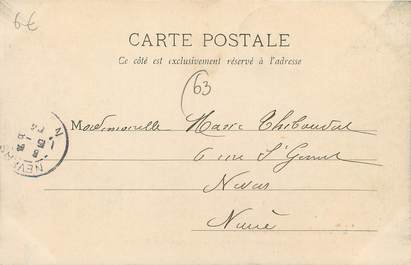 6€
CARTE POSTALE
Ce côté est exclusivement réservé à l'adresse
63
Mademoiselle Marie
6 rue St
Nièvre
NEVERS